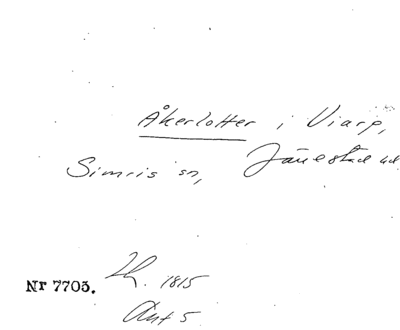 Åkerlotter i Viarp,
Simris sn, Järrestad hd
Nr 7703. Lh. 1815
Ant 5